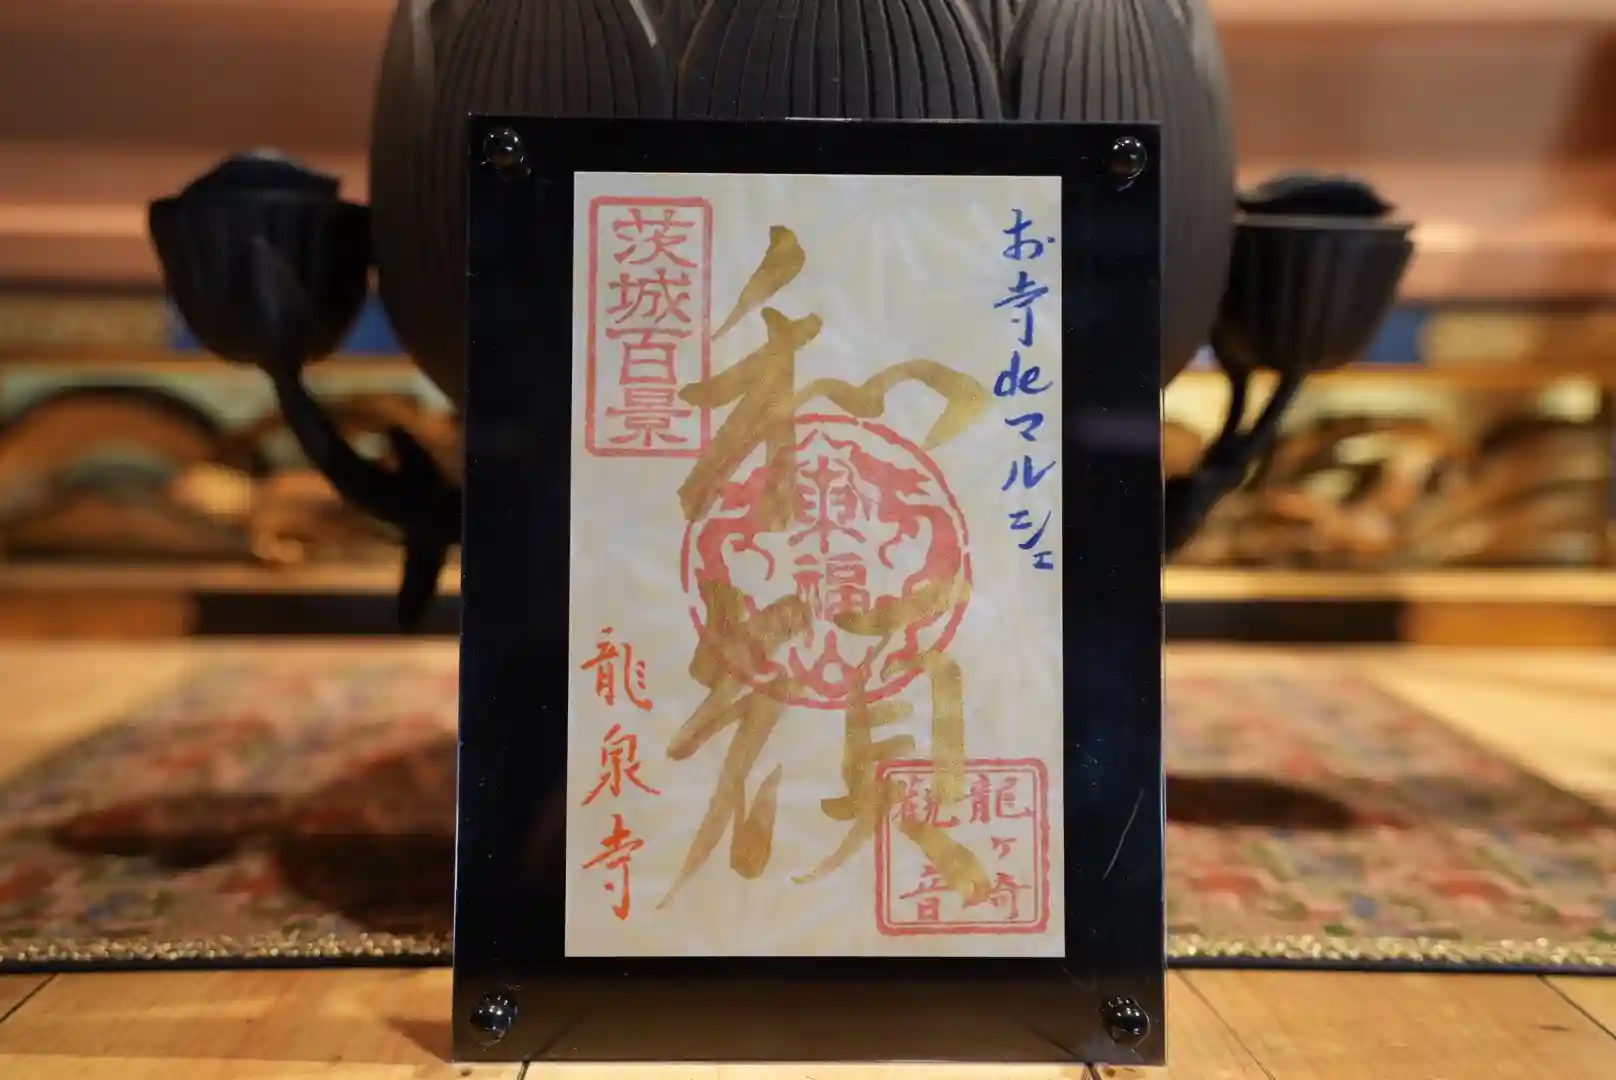 お寺deマルシェ
和顔
東福山
龍ヶ崎
觀音
茨城百景
龍泉寺